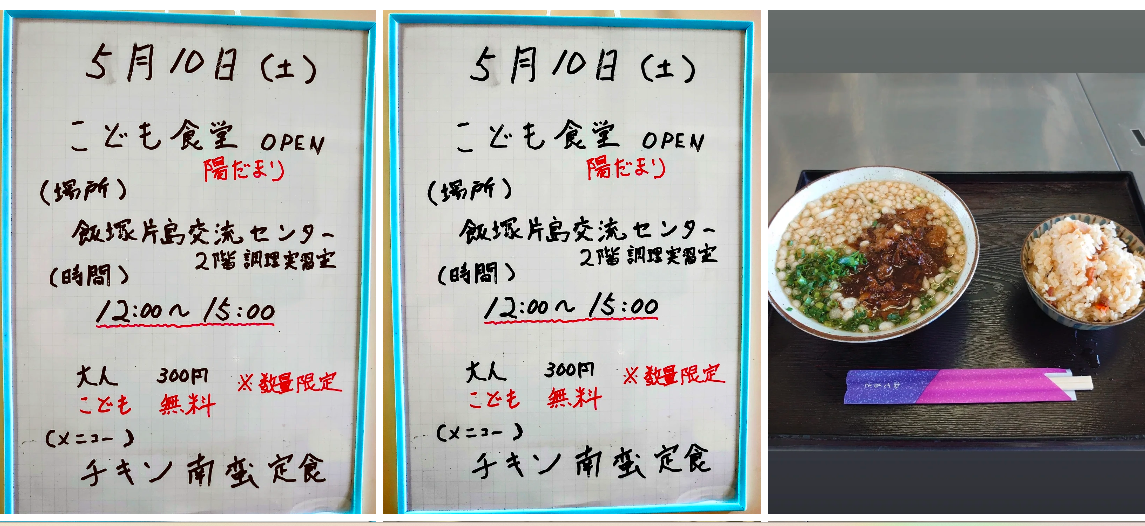 5月10日(土)
こども食堂 OPEN
陽だまり
(場所)
飯塚片島交流センター
2階調理実習室
(時間)
12:00～15:00
大人 300円 ※数量限定
こども 無料
(メニュー)
チキン南蛮定食
5月10日(土)
こども食堂 OPEN
陽だまり
(場所)
飯塚片島交流センター
2階調理実習室
(時間)
12:00～15:00
大人 300円 ※数量限定
こども 無料
(メニュー)
チキン南蛮定食